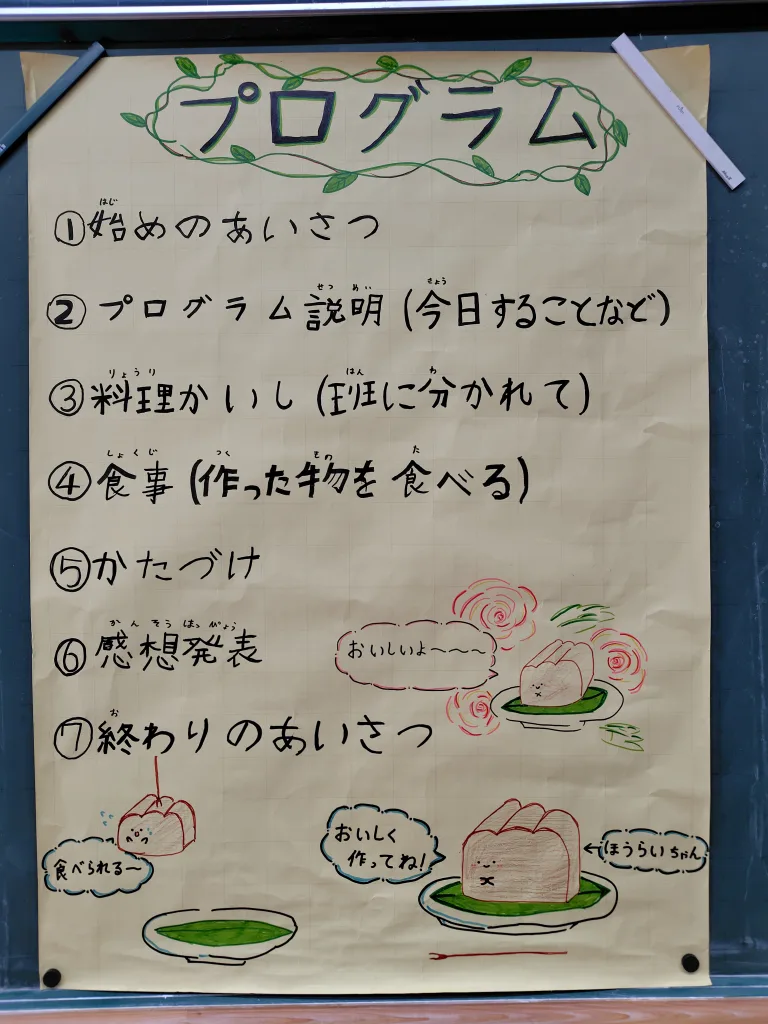 プログラム
はじ
①始めのあいさつ
せつ めい きょう
②プログラム説明(今日することなど)
りょうり はん わ
③料理かいし(班に分かれて)
しょくじ つく もの た
④食事(作った物を食べる)
⑤かたづけ
かんそうはっぴょう
⑥感想発表
おいしいよ〜〜〜
お
⑦終わりのあいさつ
食べられる〜
おいしく
作ってね!
←ほうらいちゃん